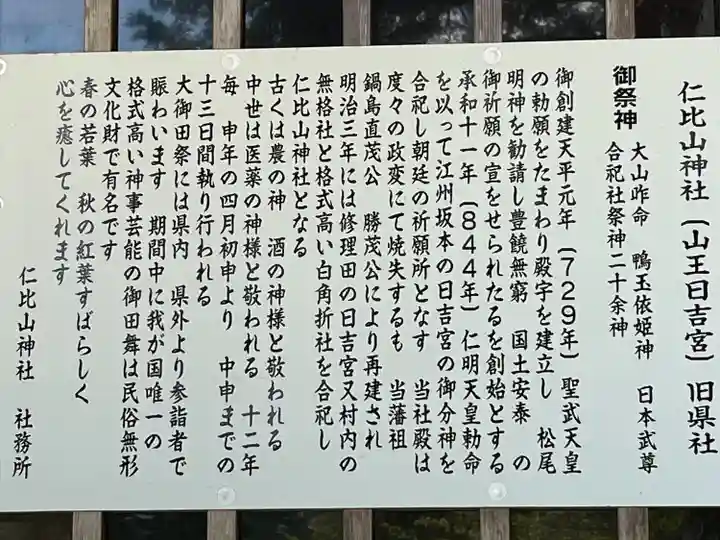 仁比山神社(山王日吉宮)旧県社
御祭神 大山咋命 鴨玉依姫神 日本武尊
合祀社祭神二十余神
御創建天平元年(729年)聖武天皇
の勅願をたまわり殿宇を建立し 松尾
明神を勧請し豊饒無窮 国土安泰 の
御祈願の宣をせられたるを創始とする
承和十一年(844年)仁明天皇勅命
を以って江州坂本の日吉宮の御分神を
合祀し朝廷の祈願所となす 当社殿は
度々の政変にて焼失するも 当藩祖
鍋島直茂公 勝茂公により再建され
明治三年には修理田の日吉宮又村内の
無格社と格式高い白角折社を合祀し
仁比山神社となる
古くは農の神 酒の神様と敬われる
中世は医薬の神様と敬われる 十二年
毎 申年の四月初申より 中申までの
十三日間執り行われる
大御田祭には県内 県外より参詣者で
賑わいます 期間中に我が国唯一の
格式高い神事芸能の御田舞は民俗無形
文化財で有名です
春の若葉 秋の紅葉すばらしく
心を癒してくれます
仁比山神社 社務所